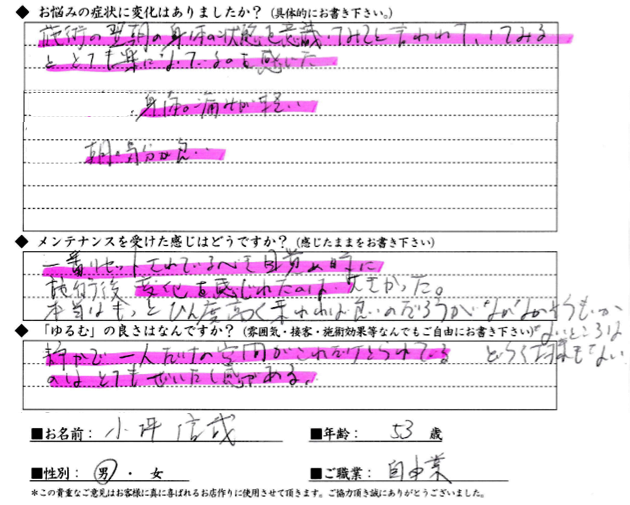 ◆ お悩みの症状に変化はありましたか？（具体的にお書き下さい。）
施術の翌朝の身体の状態を意識してみてと言われて、してみる
ととても楽になっているのを感じた
身体の痛みが軽い
朝の気分が良い
◆ メンテナンスを受けた感じはどうですか？（感じたままをお書き下さい）
一番リセットされている
施術後 変化を感じれたのは 大きかった。
本当はもっとひん度高く来れれば良いのだろうが なかなかそうもいか
ないところは
◆ 「ゆるむ」の良さはなんですか？（雰囲気・接客・施術効果等なんでもご自由にお書き下さい）
静かで一人だけの空間がこれだけとられている
のはとてもぜいたく感がある。
■お名前： 小坪 信哉
■年齢： 53 歳
■性別： 男 ・ 女
■ご職業： 自由業
＊この貴重なご意見はお客様に真に喜ばれるお店作りに使用させて頂きます。ご協力頂き誠にありがとうございました。